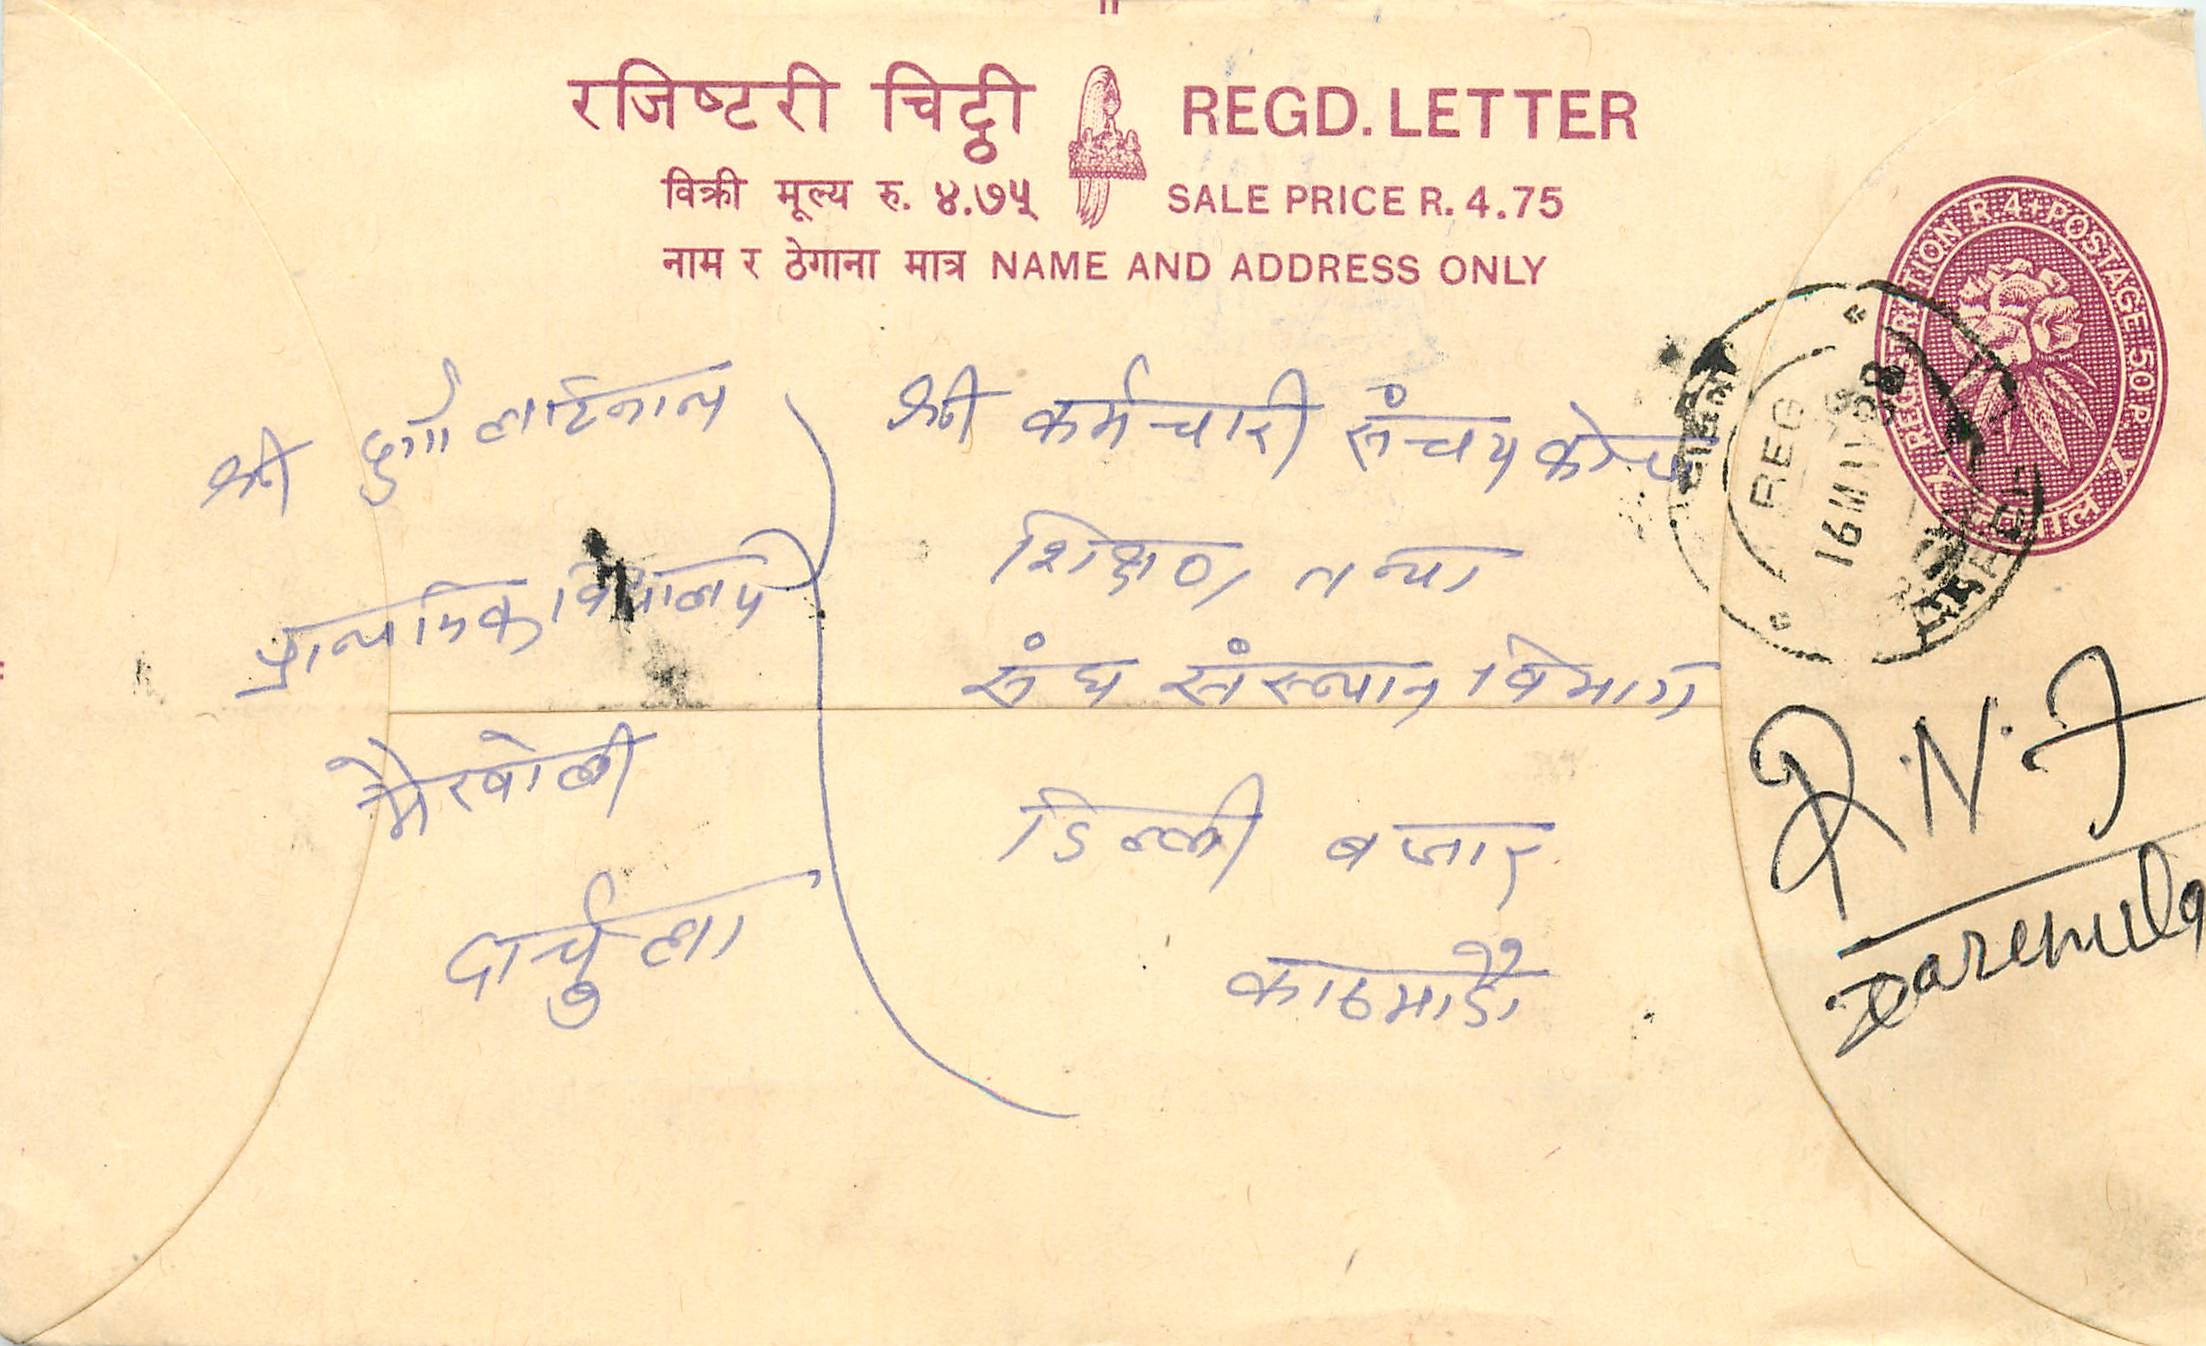 रजिष्टरी चिठ्ठी REGD. LETTER
विक्री मूल्य रु. ४.७५ SALE PRICE R. 4.75
नाम र ठेगाना मात्र NAME AND ADDRESS ONLY
REGISTRATION R.4+POSTAGE 50 P.
नेपाल
REG
16 III 88
श्री दुर्गा लाटिनाथ
प्राथमिक विद्यालय
भैरवोली
दार्चुला
श्री कर्मचारी संचय कोष
शिक्षण तथा
संघ संस्थान विभाग
डिल्ली बजार
काठमाडौं
R.N.J